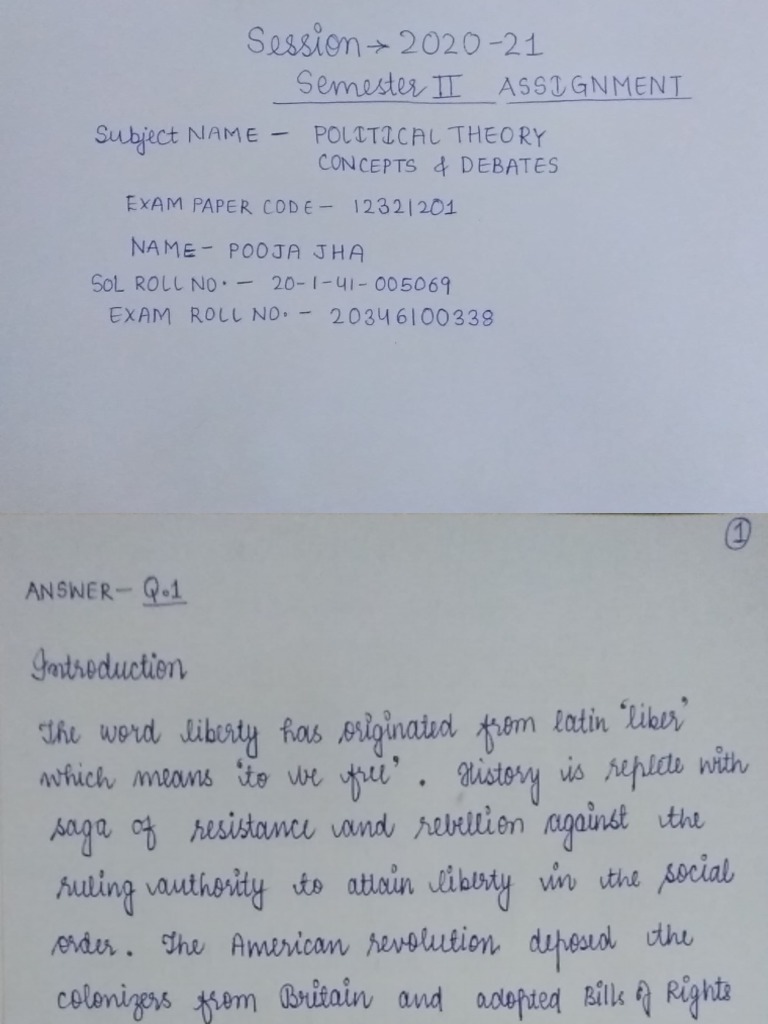 Session → 2020-21
Semester II ASSIGNMENT
Subject NAME - POLITICAL THEORY
CONCEPTS & DEBATES
EXAM PAPER CODE - 12321201
NAME - POOJA JHA
SOL ROLL NO. - 20-1-41-005069
EXAM ROLL NO. - 20346100338
1
ANSWER - Q.1
Introduction
The word liberty has originated from latin 'liber'
which means 'to be free'. History is replete with
saga of resistance and rebellion against the
ruling authority to attain liberty in the social
order. The American revolution deposed the
colonizers from Britain and adopted Bills of Rights